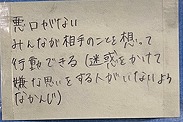 悪口がない
みんなが相手のことを想って
行動できる(迷惑をかけて
嫌な思いをする人がいないよう
なかんじ)